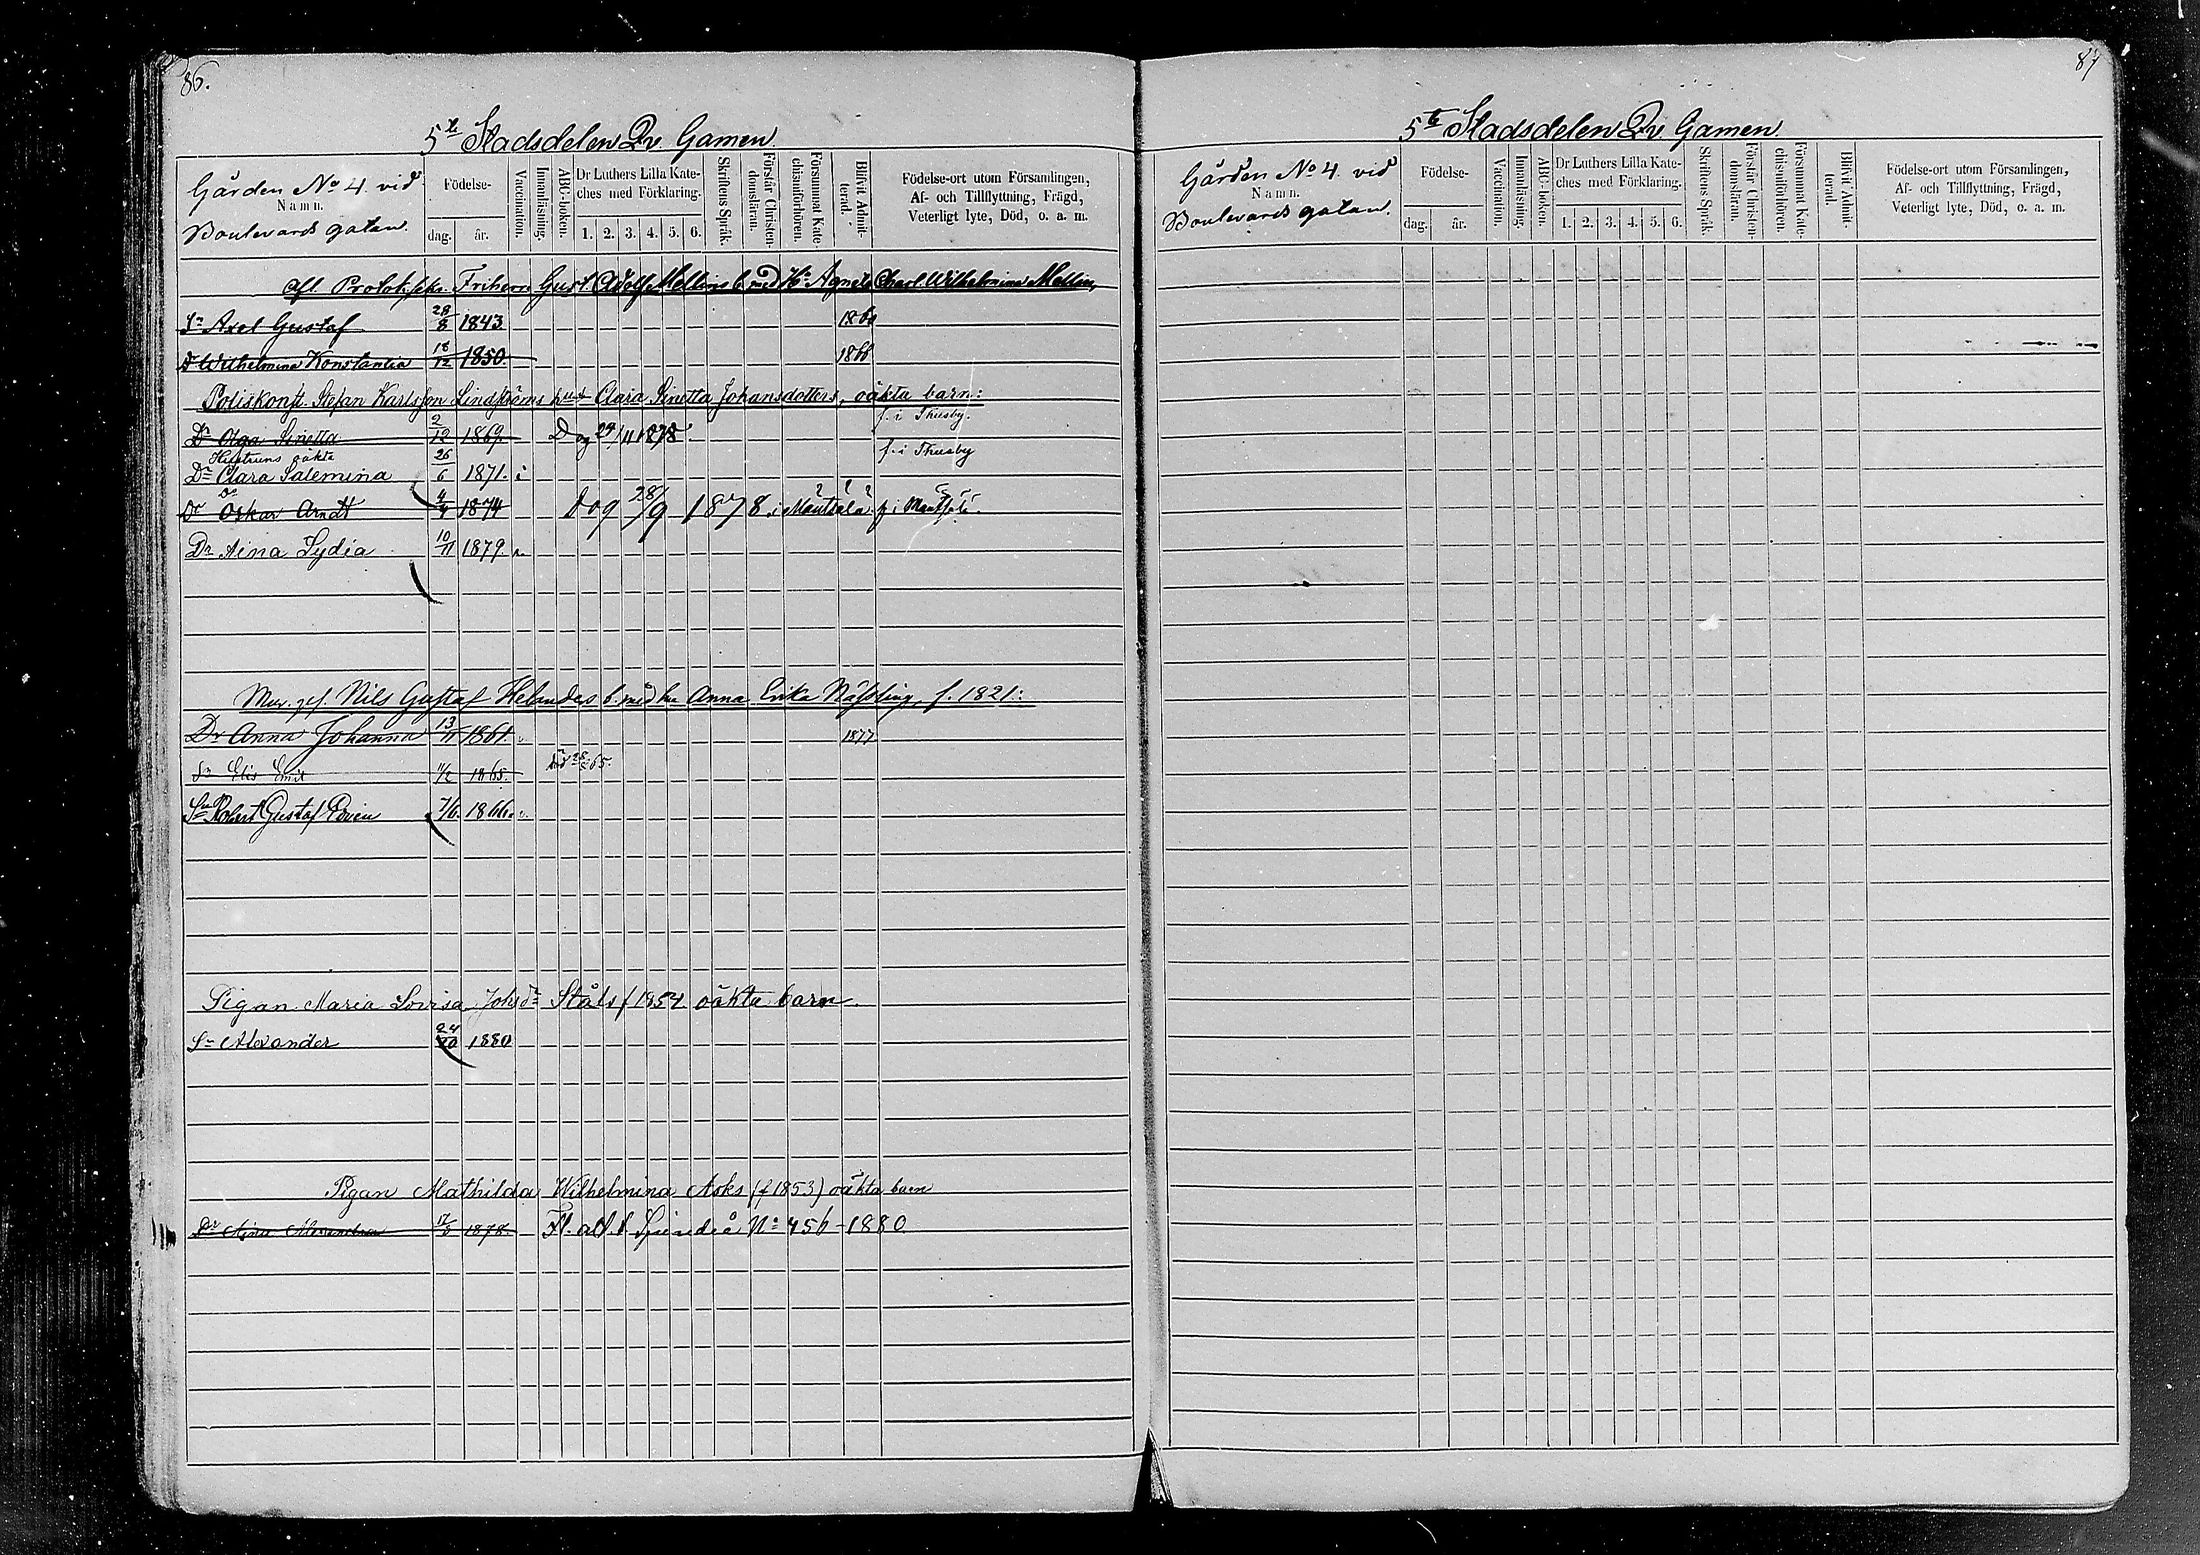 86.
5te Stadsdelen Qv Gamen
Gården No 4. vid
Namn.
Boulevards gatan.
Födelse-
dag. år.
Vaccination.
Innanläsning.
ABC-boken.
Dr Luthers Lilla Kate-
ches med Förklaring.
1. 2. 3. 4. 5. 6.
Skriftens Språk.
Förstår Christen-
domsläran.
Försummat Kate-
chismiförhören.
Blifvit Admit-
terad.
Födelse-ort utom Församlingen,
Af- och Tillflyttning, Frägd,
Veterligt lyte, Död, o. a. m.
Afl Protok.sekr. Friherre Gust Adolf Mellins b. med Hr Agneta Charl Wilhelmina Mellin,
Sn Axel Gustaf 28/8 1843 1860
Dr Wilhelmina Konstantia 18/12 1850 1866
Poliskonst. Stefan Karlsson Lindströms hust Clara Sinetta Johansdotters, oäkta barn:
Dr Olga Sinetta 2/12 1869. Dog 24/11 1878 f. i Thusby.
Hustruns oäkta
Dr Clara Salemina 26/6 1871. f. i Thusby
do
Oskar Arndt 4/4 1874 Dog 28/9 1878 i Mäntsälä f. i Mäntsälä.
Dr Aina Lydia 10/11 1879.
Mur. ges. Nils Gustaf Helanders b. med hu Anna Erika Nässling, f. 1821:
Dr Anna Johanna 13/11 1861 1877
Sn Elis Emil 11/2 1865. död 65.
Sn Robert Gustaf Edvin 7/6. 1866.
Pigan Maria Lovisa Johsdr Ståls f 1854 oäkta barn
Sn Alexander 24/10 1880
Pigan Mathilda Wilhelmina Asks (f 1853) oäkta barn
Dr Aina Alexandra 1878. Fl. att. t. Sjundeå No 456 - 1880
87
5te Stadsdelen Qv Gamen
Gården No 4. vid
Namn.
Boulevards gatan.
Födelse-
dag. år.
Vaccination.
Innanläsning.
ABC-boken.
Dr Luthers Lilla Kate-
ches med Förklaring.
1. 2. 3. 4. 5. 6.
Skriftens Språk.
Förstår Christen-
domsläran.
Försummat Kate-
chismiförhören.
Blifvit Admit-
terad.
Födelse-ort utom Församlingen,
Af- och Tillflyttning, Frägd,
Veterligt lyte, Död, o. a. m.